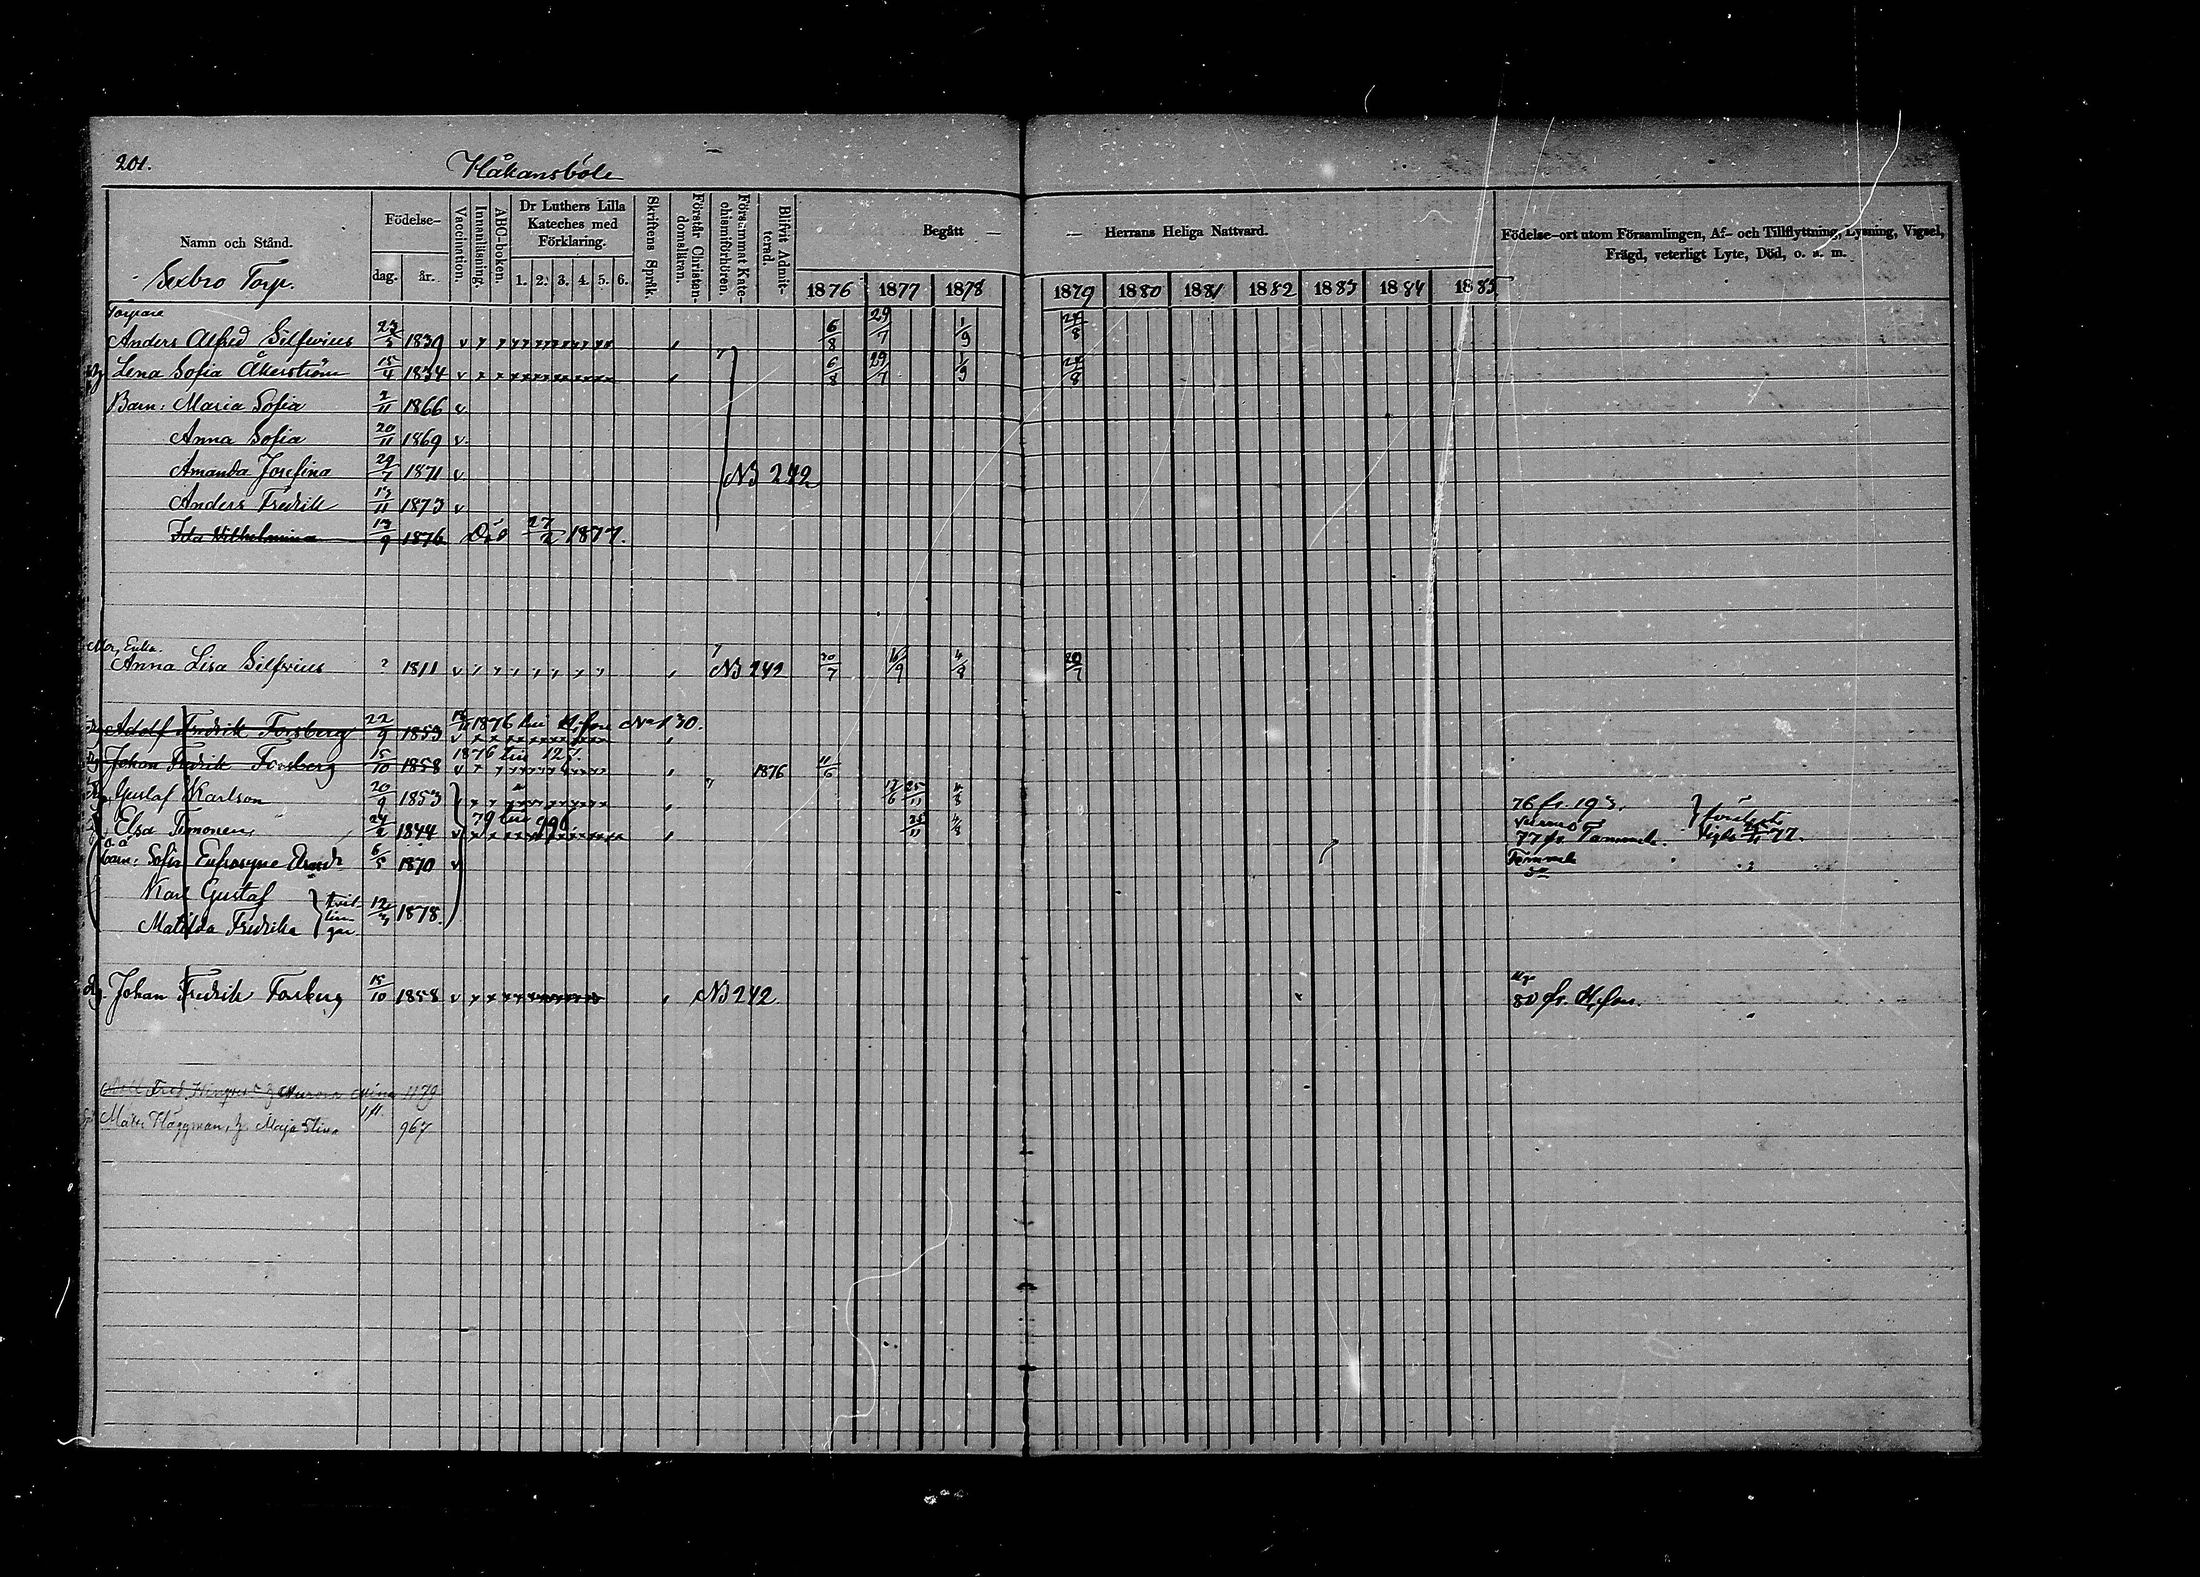 201.
Håkansböle
Namn och Stånd.
Födelse-
dag.
år.
Vaccination.
Innanläsning.
ABC-boken.
Dr Luthers Lilla Kateches med Förklaring.
1. 2. 3. 4. 5. 6.
Skriftens Språk.
Förstår Christendomsläran.
Försummat Katechismiförhören.
Blifvit Admitterad.
Begått — — Herrans Heliga Nattvard.
1876 1877 1878 1879 1880 1881 1882 1883 1884 1885
Födelse-ort utom Församlingen, Af- och Tillflyttning, Lysning, Vigsel, Frägd, veterligt Lyte, Död, o. s. m.
Sexbro Torp.
Torpare
Anders Alfred Silfverius 23/5 1839 6/8 29/7 1/9 24/8
Lena Sofia Åkerström 15/4 1834 6/8 29/7 1/9 24/8
Barn: Maria Sofia 2/11 1866
Anna Sofia 20/11 1869
Amanda Josefina 29/7 1871 NB 242
Anders Fredrik 13/11 1873
Ida Wilhelmina 13/9 1876 Död 27/2 1877.
Mor, Enka.
Anna Lisa Silfverius ? 1811 NB 242 30/7 16/9 4/8 20/7
Adolf Fredrik Forsberg 22/9 1853 1876 till H:fors No 130.
Johan Fredrik Forsberg 15/10 1858 1876 till 125. 1876 11/6
Gustaf Karlson 20/9 1853 17/6 25/11 4/8 76 fr. 193.
79 till 996
Elsa Timonen 24/2 1844 25/11 4/8 77 fr. Tammela. Vigda 25/11 77.
barn: Sofia Eufrosyne 6/5 1870 Tammela
Karl Gustaf
Matilda Fredrika } tvillingar 12/3 1878.
Johan Fredrik Forsberg 15/10 1858 NB 242 80 fr. H:fors.
Aurora Mina 1179
Matts Häggman, h. Maja Stina 967